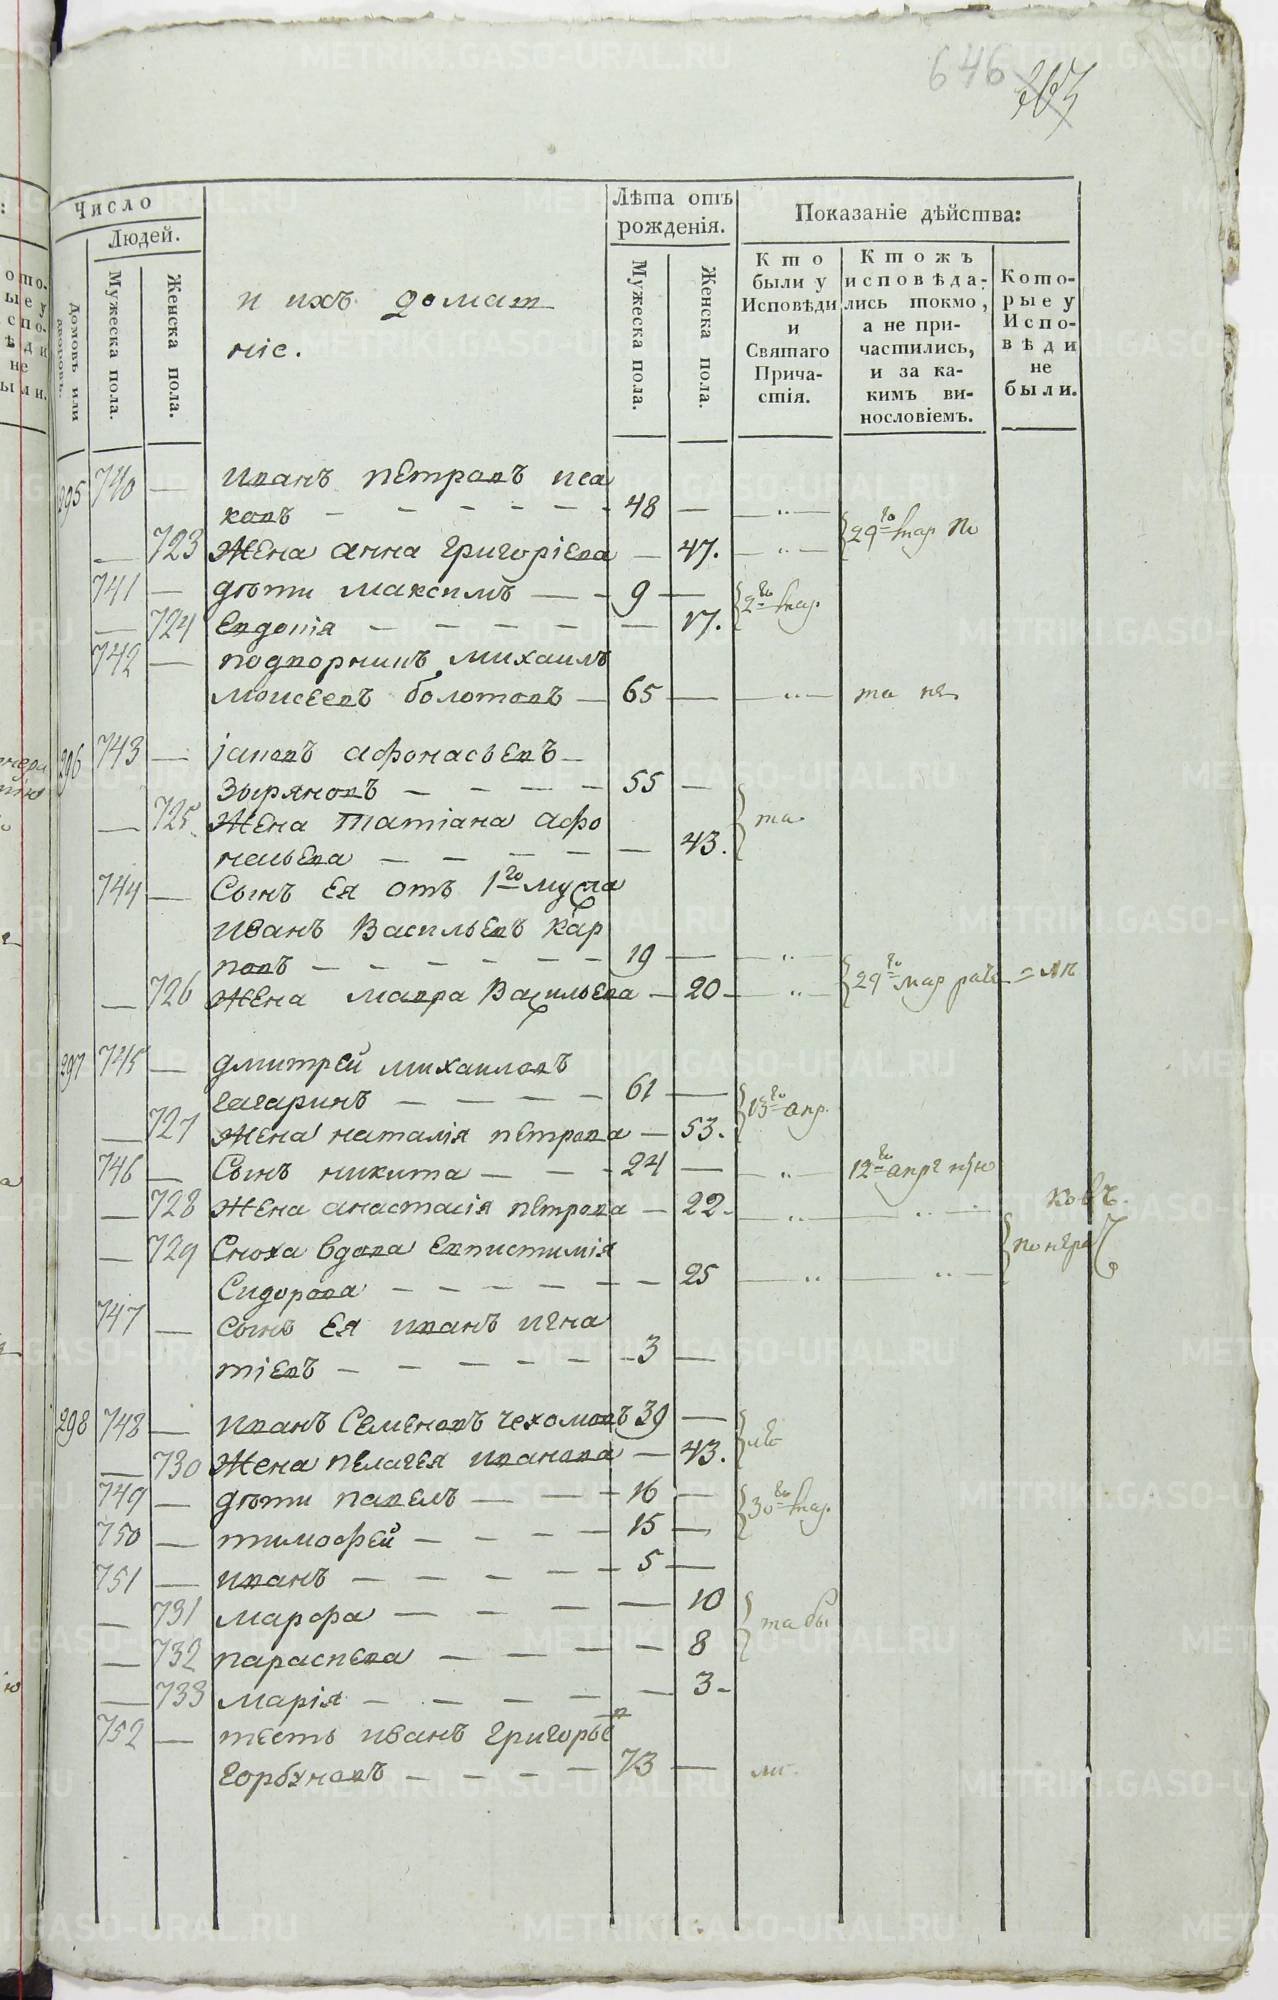 646
Число
Людей.
Домовъ или дворовъ.
Мужеска пола.
Женска пола.
и ихъ домаш
ніе.
Лѣта отъ рожденія.
Мужеска пола.
Женска пола.
Показаніе дѣйства:
Кто были у Исповѣди и Святаго Причастія.
Ктожъ исповѣдались токмо, а не причастились, и за какимъ винословіемъ.
Которые у Исповѣди не были.
295 740 — Иванъ Петровъ Иса
ковъ — 48 —
— 723 Жена Анна Григоріева — 47. 29го мар
741 — дѣти Максимъ — 9 — 2го мар.
— 724 Евдокія — 17.
742 — подворникъ Михаилъ
Моисеевъ Болотовъ — 65 —
296 743 — Іаковъ Афонасьевъ —
Зыряновъ — 55 —
— 725 Жена Татіана Афо
насьева — 43. та
744 — Сынъ ея отъ 1го мужа
Иванъ Васильевъ Кар
повъ — 19 —
— 726 Жена Мавра Васильева — 20 — 29го мар
297 745 — Дмитрей Михаиловъ
Гагаринъ — 61 —
— 727 Жена Наталія Петрова — 53. 13го апр.
746 — Сынъ Никита — 24 — 12го апр
— 728 Жена Анастасія Петрова — 22.
— 729 Сноха вдова Евпистимія
Сидорова — 25
747 — Сынъ ея Иванъ Игна
тіевъ — 3 —
298 748 — Иванъ Семеновъ Чехомовъ 39 —
— 730 Жена Пелагея Иванова — 43.
749 — дѣти Павелъ — 16 — 30го мар.
750 — Тимофей — 15 —
751 — Иванъ — 5 —
— 731 Марфа — 10
— 732 Параскева — 8
— 733 Марія — 3 —
752 — тесть Иванъ Григорьев
Горбуновъ — 73 —
METRIKI.GASO-URAL.RU